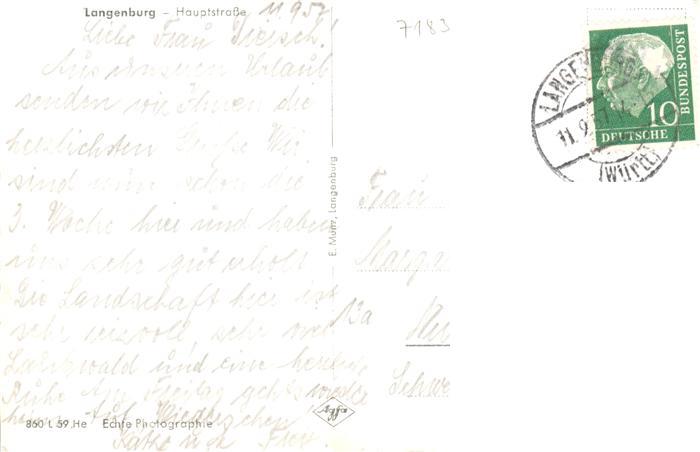 Langenburg – Hauptstraße 11.9.57
7183
Liebe Frau
Aus unseren Urlaub
senden wir Ihnen die
herzlichsten Grüße. Wir
sind nun schon die
3. Woche hier und haben
uns sehr gut erholt
Die Landschaft hier ist
sehr reizvoll, sehr
und eine herrliche
Ruhe. Am Freitag gehts wieder
heim. Auf Wiedersehen
860 L 59 He Echte Photographie
E. Munz, Langenburg
Agfa
Frau
Marga
13a
Schwe
LANGENBURG
11.9.57
(WÜRTT)
10
DEUTSCHE
BUNDESPOST